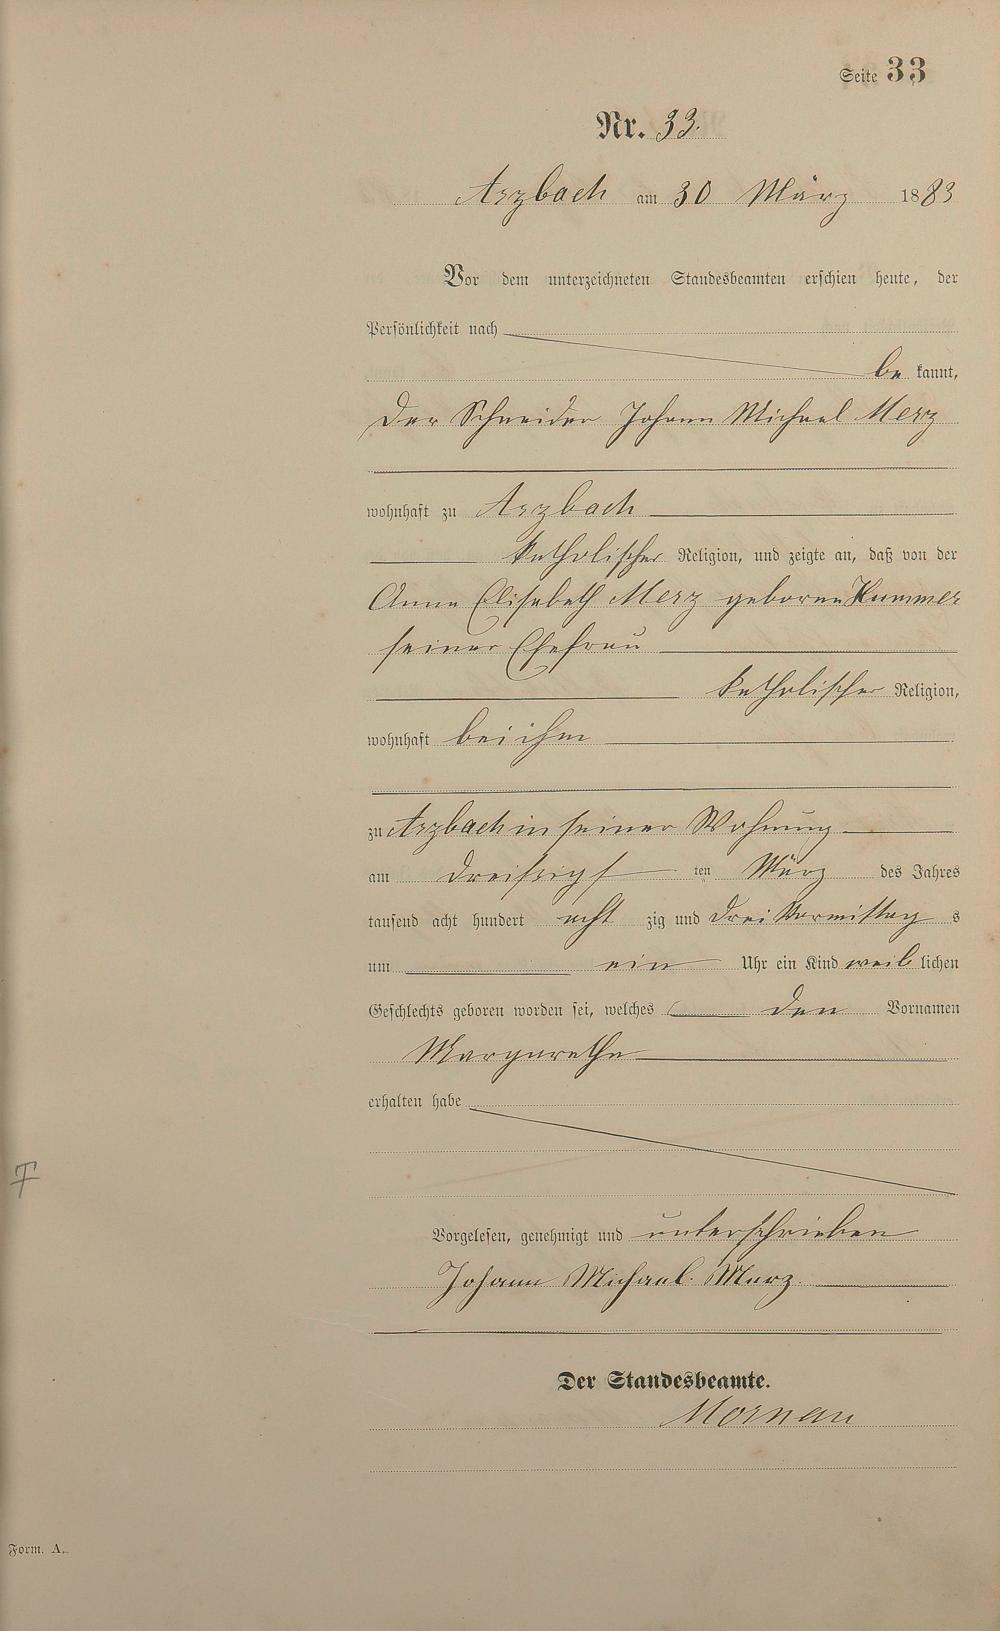 Seite 33
Nr. 33.
Arzbach am 30 März 1883
Vor dem unterzeichneten Standesbeamten erschien heute, der
Persönlichkeit nach
be kannt,
der Schneider Johann Michael Merz
wohnhaft zu Arzbach
katholischer Religion, und zeigte an, daß von der
Anna Elisabeth Merz geborne Kummer
seiner Ehefrau
katholischer Religion,
wohnhaft bei ihm
zu Arzbach in seiner Wohnung
am dreisigst ten März des Jahres
tausend acht hundert acht zig und drei Vormittag s
um ein Uhr ein Kind weib lichen
Geschlechts geboren worden sei, welches den Vornamen
Margarethe
erhalten habe
Vorgelesen, genehmigt und unterschrieben
Johann Michael Merz.
Der Standesbeamte.
Mornau
Form. A.